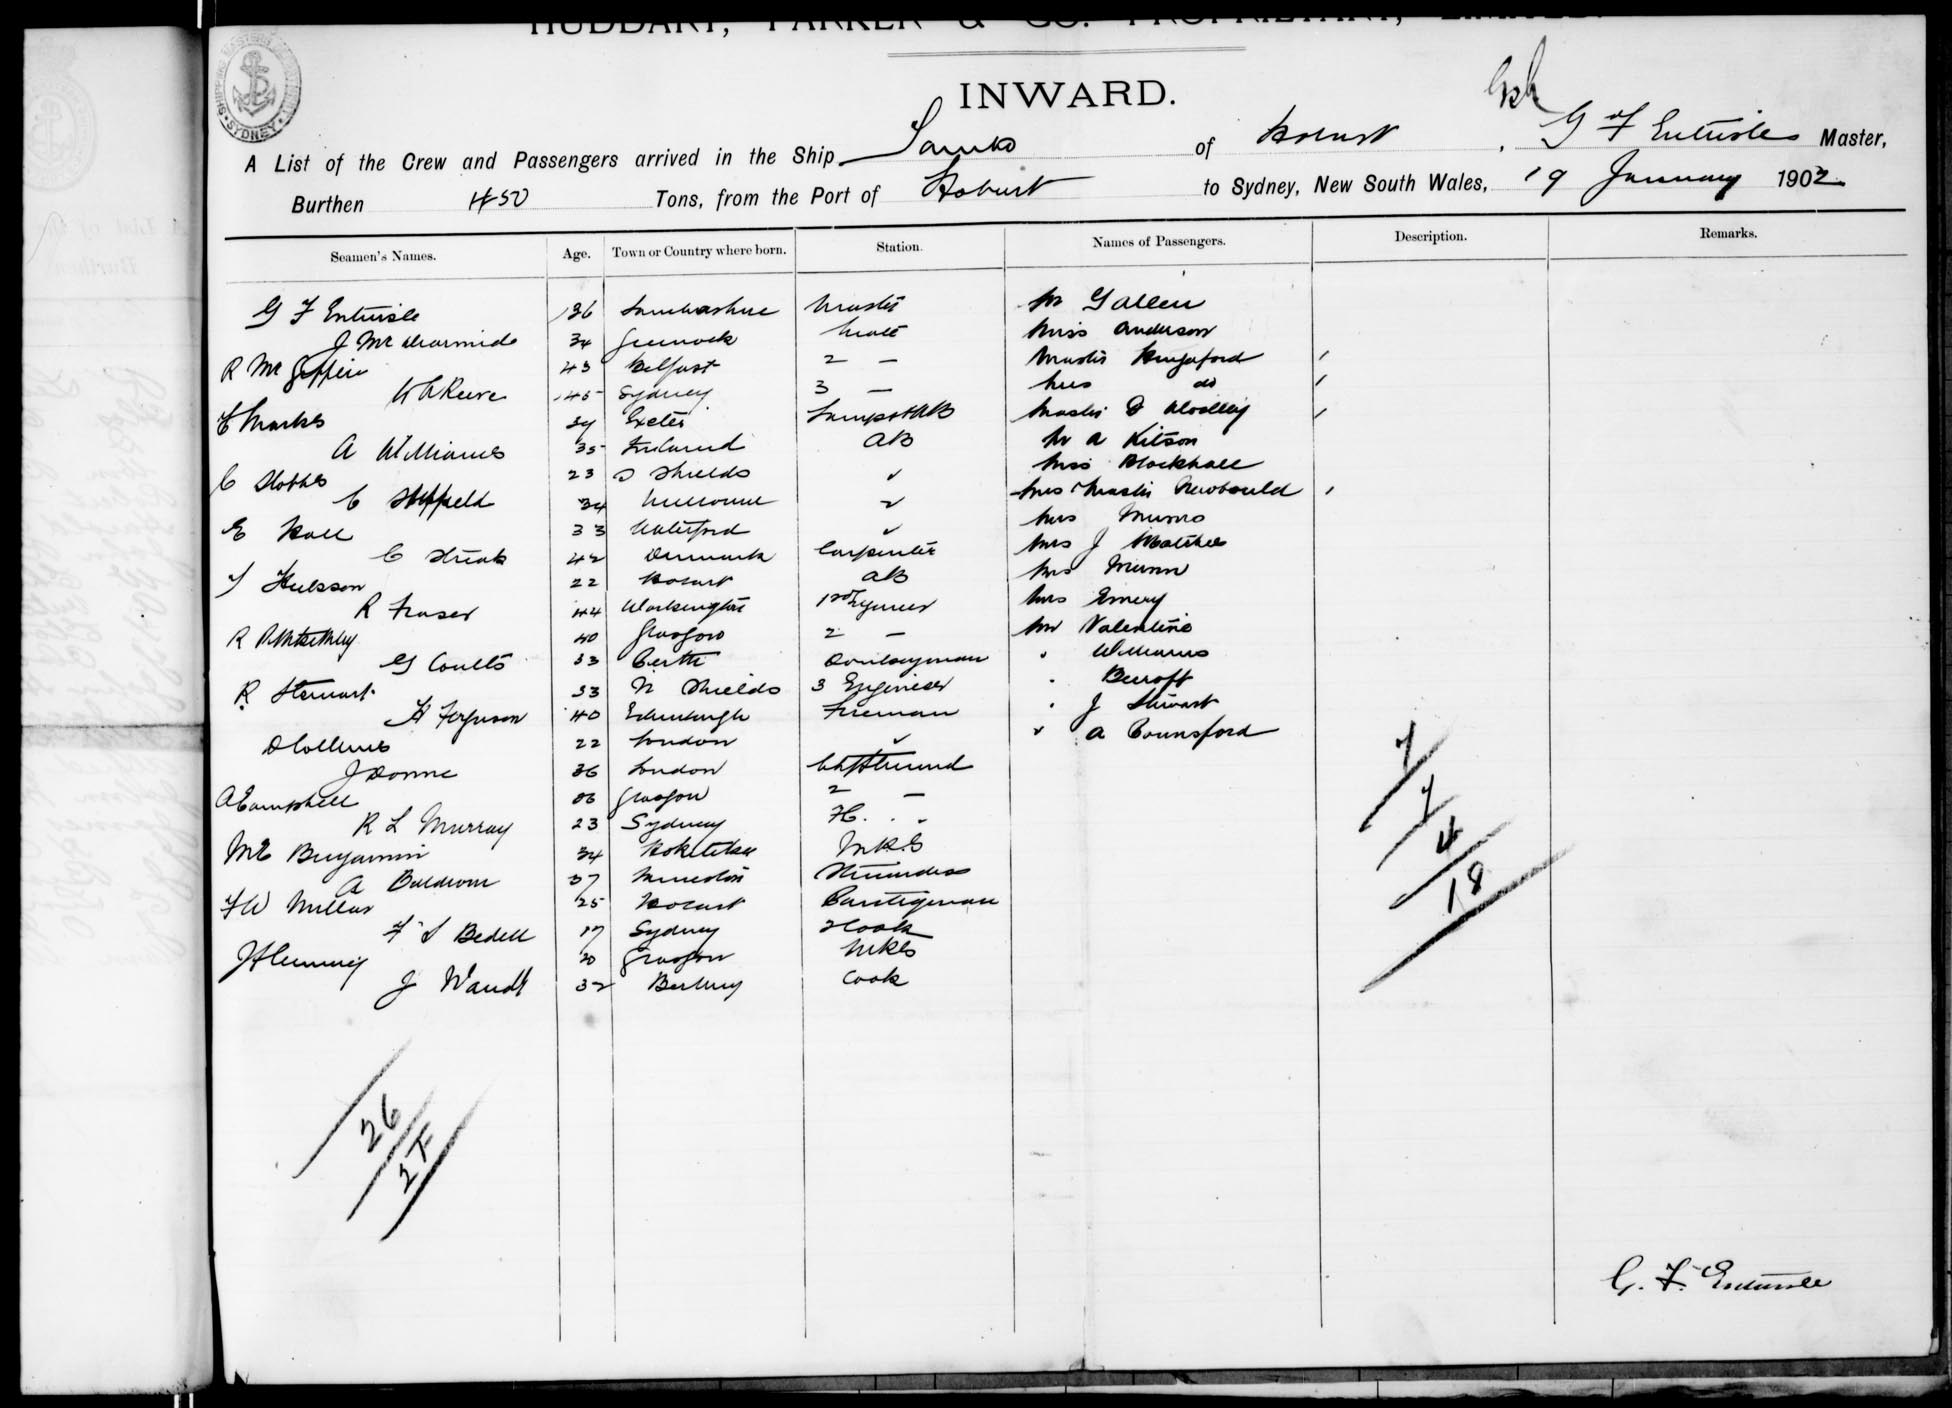 HUDDART, PARKER & CO. PROPRIETARY, LIMITED.
SHIPPING MASTERS SYDNEY
INWARD.
A List of the Crew and Passengers arrived in the Ship of Hobart, G F Entwisle Master,
Burthen 450 Tons, from the Port of Hobart to Sydney, New South Wales, 19 January 1902
Seamen's Names. Age. Town or Country where born. Station. Names of Passengers. Description. Remarks.
G F Entwisle 36 Lancashire Master Mr G Allen
J McDiarmid 34 Greenock Mate Miss Anderson
R McGiffin 43 Belfast 2 — Master Kingsford
W A Reeve 45 Sydney 3 — Miss do
F Marks 39 Exeter Lamps & AB Master D
A Williams 35 Finland AB Mr A Kitson
C Hobbs 23 S Shields ✓ Miss Blackhall
C Sheffield 34 Melbourne ✓ Mrs & Master Newbould
E Hall 33 Waterford ✓ Mrs Munro
C 42 Denmark Carpenter Mrs J
22 Hobart AB Mrs Munn
R Fraser 44 Workington 1st Engineer Mrs Emery
R 40 Glasgow 2 — Mr Valentine
G Coutts 33 Perth Donkeyman " Williams
R Stewart 33 N Shields 3 Engineer "
H Ferguson 40 Edinburgh Fireman " J Stewart
D Collins 22 London ✓ " A Bounsford
J Donne 36 London Ch Steward
A Campbell Glasgow 2 —
R L Murray 23 Sydney F.C. " "
M E Benjamin 34 Hokitika M.R.S
A Baldwin 37 Stewardess
F W Millar 25 Hobart Pantryman
F S Bedell 17 Sydney 2 Cook
J Fleming 20 Glasgow
J Wandt 32 Cook
7
7
4
18
26
2F
G. F. Entwisle